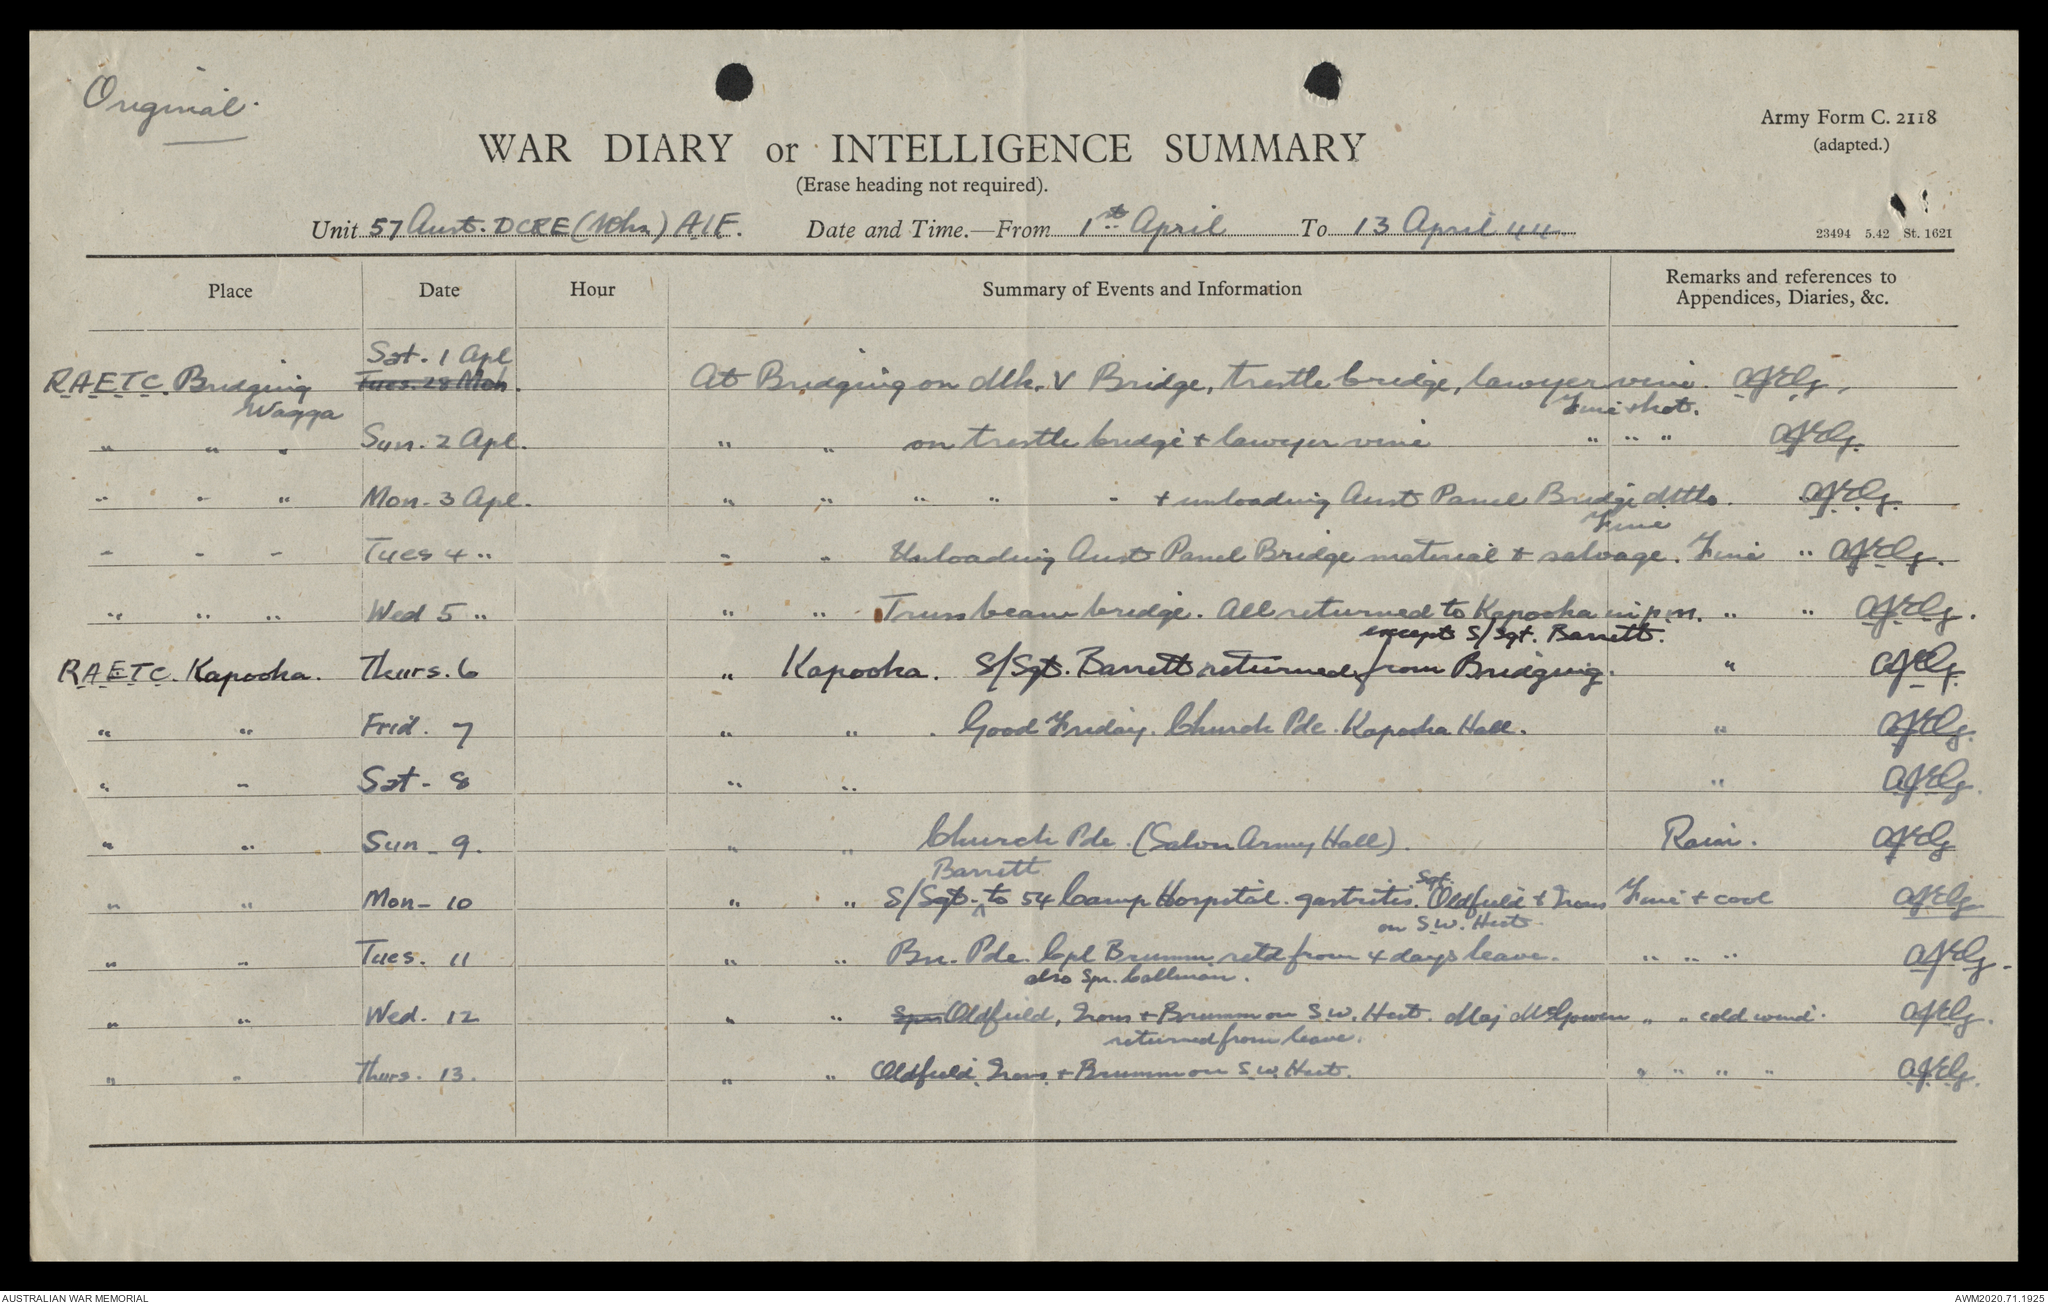 Original.
Army Form C. 2118
(adapted.)
WAR DIARY or INTELLIGENCE SUMMARY
(Erase heading not required).
Unit 57 Aust. DCRE (Wks) AIF. Date and Time.—From 1st April To 13 April 44
23494 5.42 St. 1621
Place Date Hour Summary of Events and Information Remarks and references to
Appendices, Diaries, &c.
Sat. 1 Apl
RAETC. Bridging Tues. 28 Mch. At Bridging on Mk. V Bridge, trestle bridge, lawyer vine.
Wagga Fine & hot.
" " " Sun. 2 Apl. " " on trestle bridge & lawyer vine " " "
" " " Mon. 3 Apl. " " " " " & unloading Aust Panel Bridge mtls.
Fine
" " " Tues 4 " " " Unloading Aust Panel Bridge material & salvage. Fine "
" " " Wed 5 " " " Truss beam bridge. All returned to Kapooka in p.m. " "
except S/Sgt. Barrett.
RAETC. Kapooka. Thurs. 6 " Kapooka. S/Sgt. Barrett returned from Bridging. "
" " Frid. 7 " " . Good Friday. Church Pde. Kapooka Hall. "
" " Sat - 8 " " "
" " Sun - 9. " " Church Pde. (Salvn Army Hall). Rain.
Barrett Sgt.
" " Mon - 10 " " S/Sgt. ^ to 54 Camp Hospital. gastritis. Oldfield & Irons Fine & cool
on S.W. Hut
" " Tues. 11 " " Bn. Pde. Cpl Brumm retd from 4 days leave. " " "
also Spr. Callinan.
" " Wed. 12 " " Spr Oldfield, Irons & Brumm on S.W. Hut. Maj McGowen " " cold wind.
returned from leave.
" " Thurs. 13. " " Oldfield, Irons & Brumm on S.W. Hut. " " " "
AUSTRALIAN WAR MEMORIAL AWM2020.71.1925